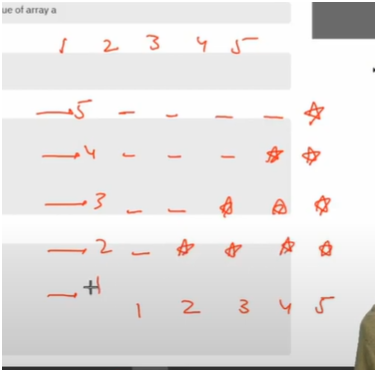 ue of array a
1 2 3 4 5
→ 5 - - - - ☆
→ 4 - - - ☆ ☆
→ 3 - - ☆ ☆ ☆
→ 2 - ☆ ☆ ☆ ☆
→ 1
1 2 3 4 5